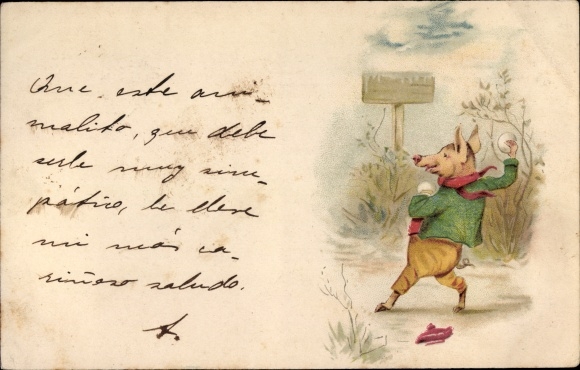 Que este ani-
malito, que debe
serle muy sim-
pático, le lleve
mi más ca-
riñoso saludo.
A.